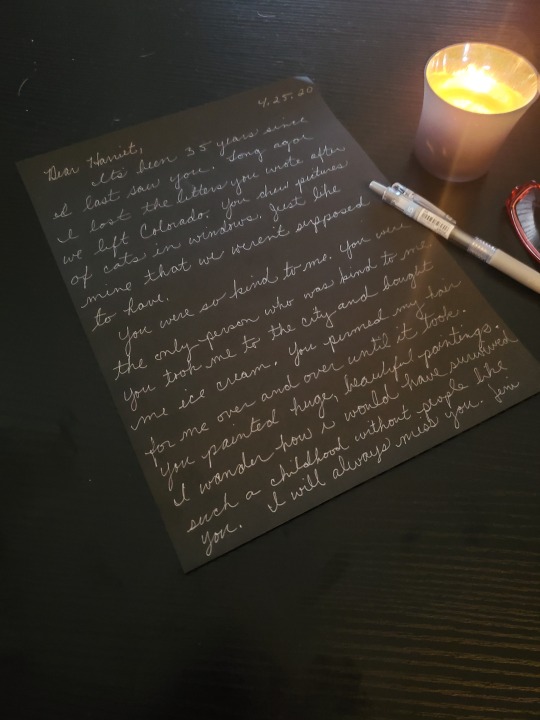 4.25.20
Dear Harriet,
It's been 35 years since
I last saw you. Long ago
I lost the letters you wrote after
we left Colorado. You drew pictures
of cats in windows. Just like
mine that we weren't supposed
to have.
You were so kind to me. You were
the only person who was kind to me.
You took me to the city and bought
me ice cream. You permed my hair
for me over and over until it took.
You painted huge, beautiful paintings.
I wander how i would have survived
such a childhood without people like
you. I will always miss you.